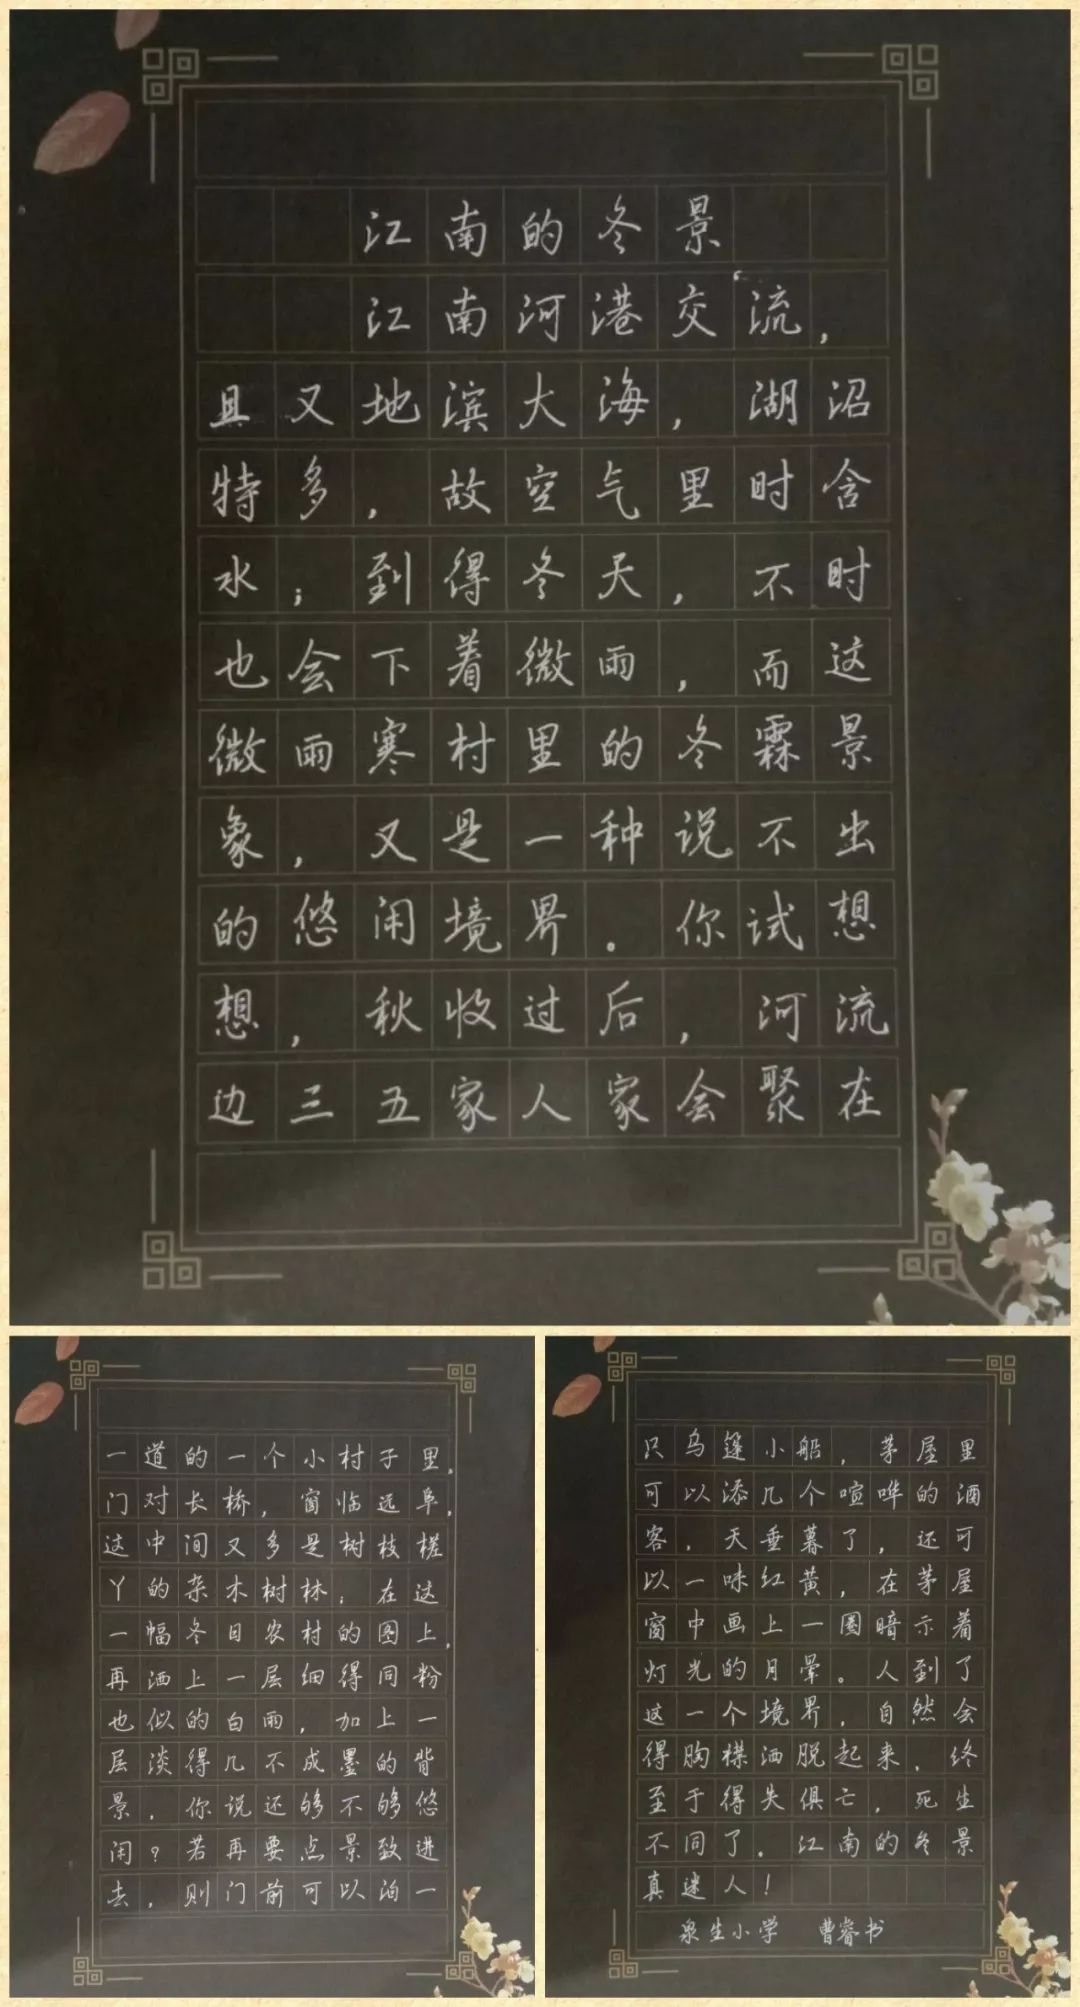 江南的冬景
江南河港交流，
且又地滨大海，湖沼
特多，故空气里时含
水；到得冬天，不时
也会下着微雨，而这
微雨寒村里的冬霖景
象，又是一种说不出
的悠闲境界。你试想
想，秋收过后，河流
边三五家人家会聚在
一道的一个小村子里，
门对长桥，窗临远阜，
这中间又多是树枝槎
丫的杂木树林；在这
一幅冬日农村的图上，
再洒上一层细得同粉
也似的白雨，加上一
层淡得几不成墨的背
景，你说还够不够悠
闲？若再要点景致进
去，则门前可以泊一
只乌篷小船，茅屋里
可以添几个喧哗的酒
客，天垂暮了，还可
以一味红黄，在茅屋
窗中画上一圈暗示着
灯光的月晕。人到了
这一个境界，自然会
得胸襟洒脱起来，终
至于得失俱亡，死生
不同了。江南的冬景
真迷人！
泉生小学 曹睿书